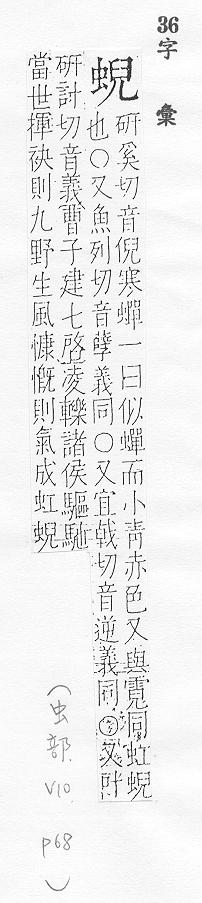 36字彙
蜺 研奚切音倪寒蟬一曰似蟬而小青赤色又與霓同虹蜺
也○又魚列切音孽義同○又宜戟切音逆義同○叶
研計切音義曹子建七啓凌轢諸侯驅馳
當世揮袂則九野生風慷慨則氣成虹蜺
(虫部 V10 P68)